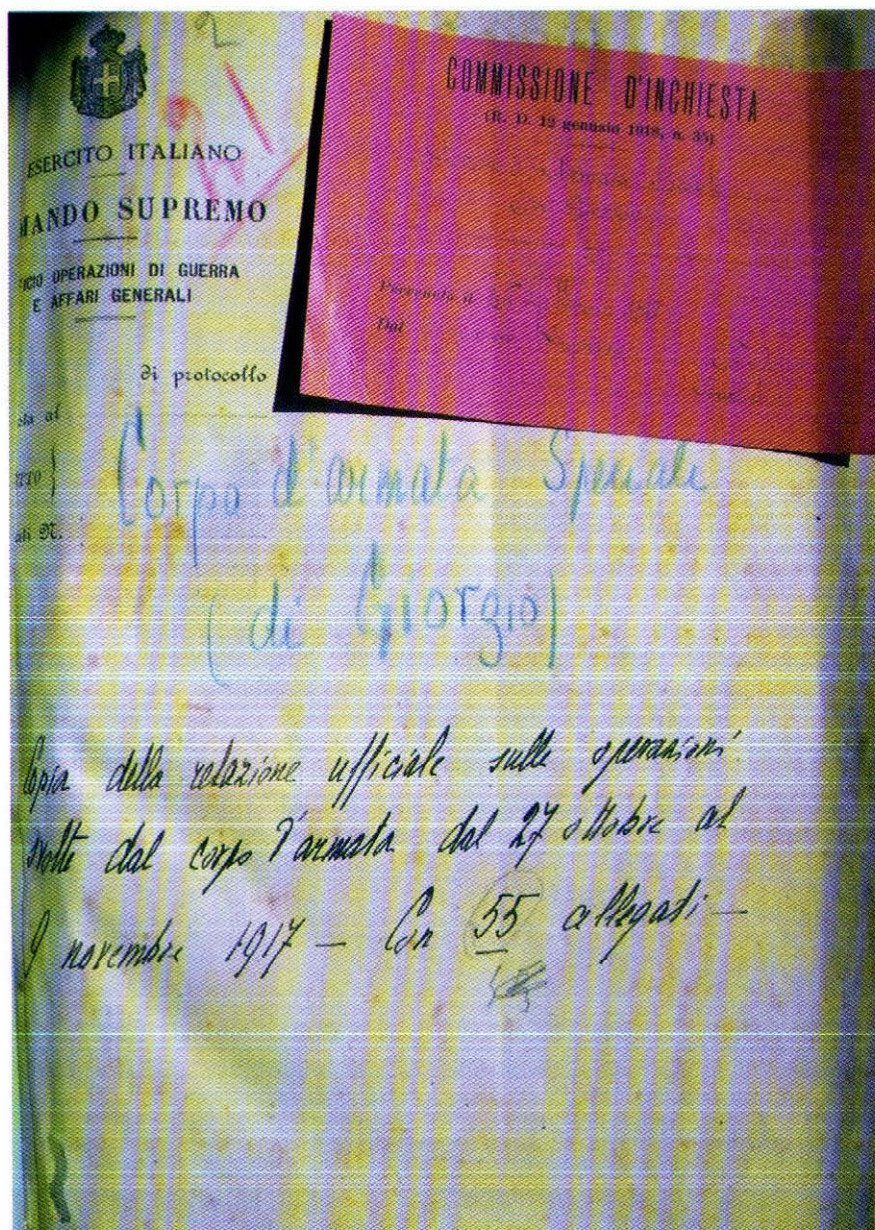 2
21
ESERCITO ITALIANO
MANDO SUPREMO
ICIO OPERAZIONI DI GUERRA
E AFFARI GENERALI
di protocollo
al
ali N.
COMMISSIONE D'INCHIESTA
(R. D. 12 gennaio 1918, n. 35)
Pervenuto il
Dal
Corpo d'armata Speciali
(di Giorgio)
Copia della relazione ufficiale sulle operazioni
svolte dal corpo d'armata dal 27 ottobre al
9 novembre 1917 — Con 55 allegati —